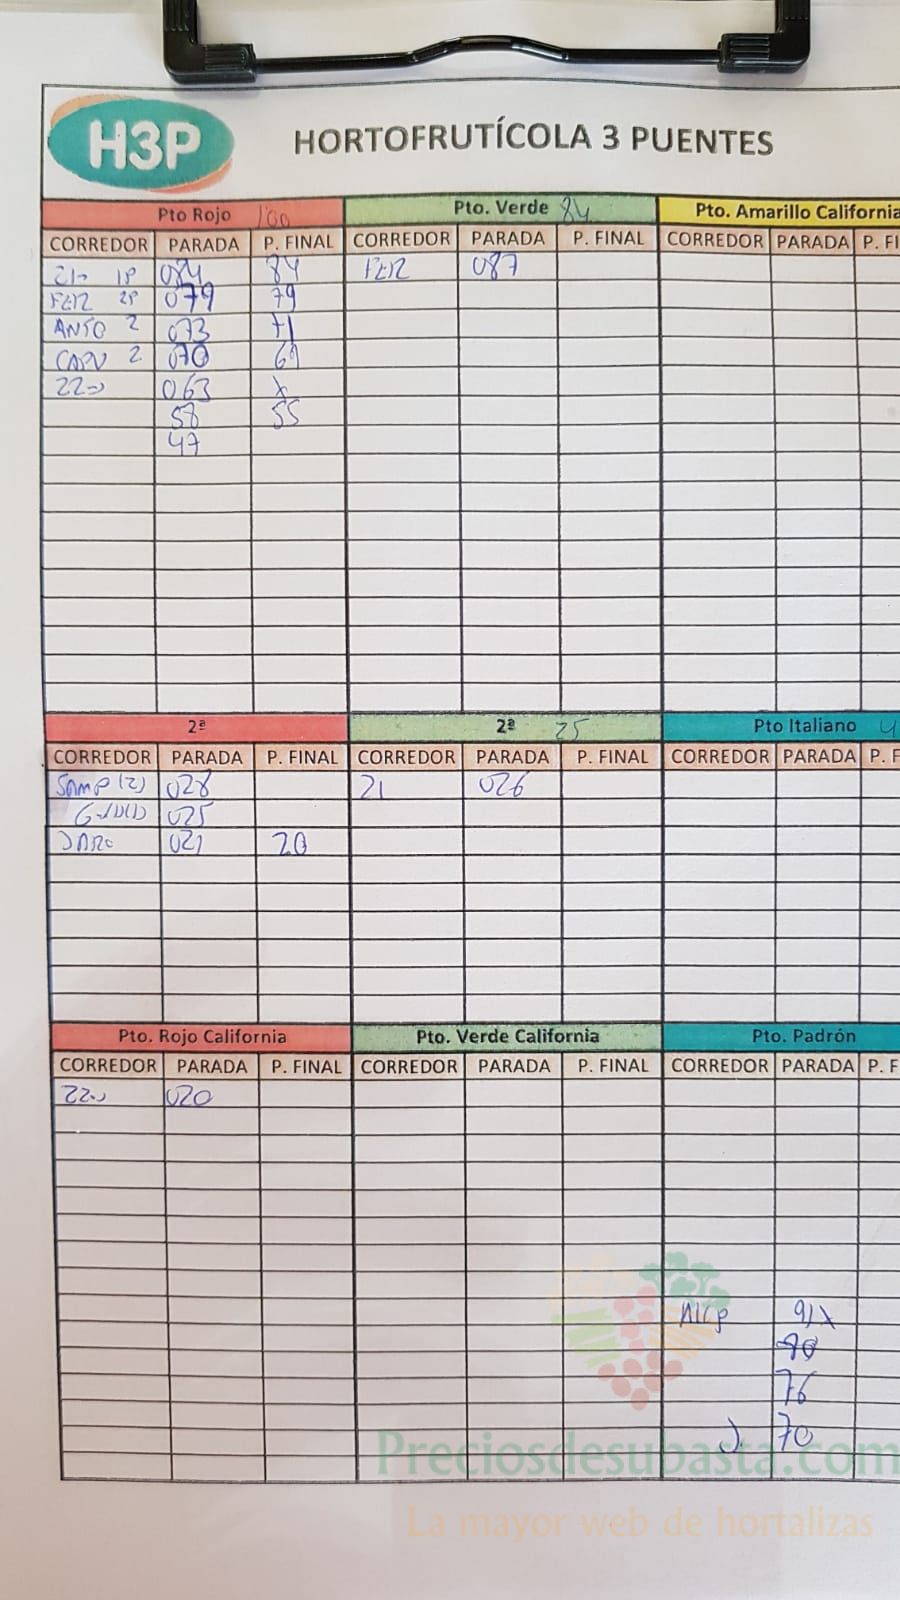 H3P HORTOFRUTÍCOLA 3 PUENTES
Pto Rojo 100 Pto. Verde 84 Pto. Amarillo California
CORREDOR PARADA P. FINAL CORREDOR PARADA P. FINAL CORREDOR PARADA P. FI
084 84 FER 087
FER 2P 079 79
ANTO 2 073 71
CAPU 2 070 69
22 063 X
58 55
47
2ª 2ª 25 Pto Italiano 4
CORREDOR PARADA P. FINAL CORREDOR PARADA P. FINAL CORREDOR PARADA P. F
SAMP (2) 028 21 026
025
021 20
Pto. Rojo California Pto. Verde California Pto. Padrón
CORREDOR PARADA P. FINAL CORREDOR PARADA P. FINAL CORREDOR PARADA P. F
220 020
76
70
Preciosdesubasta.com
La mayor web de hortalizas